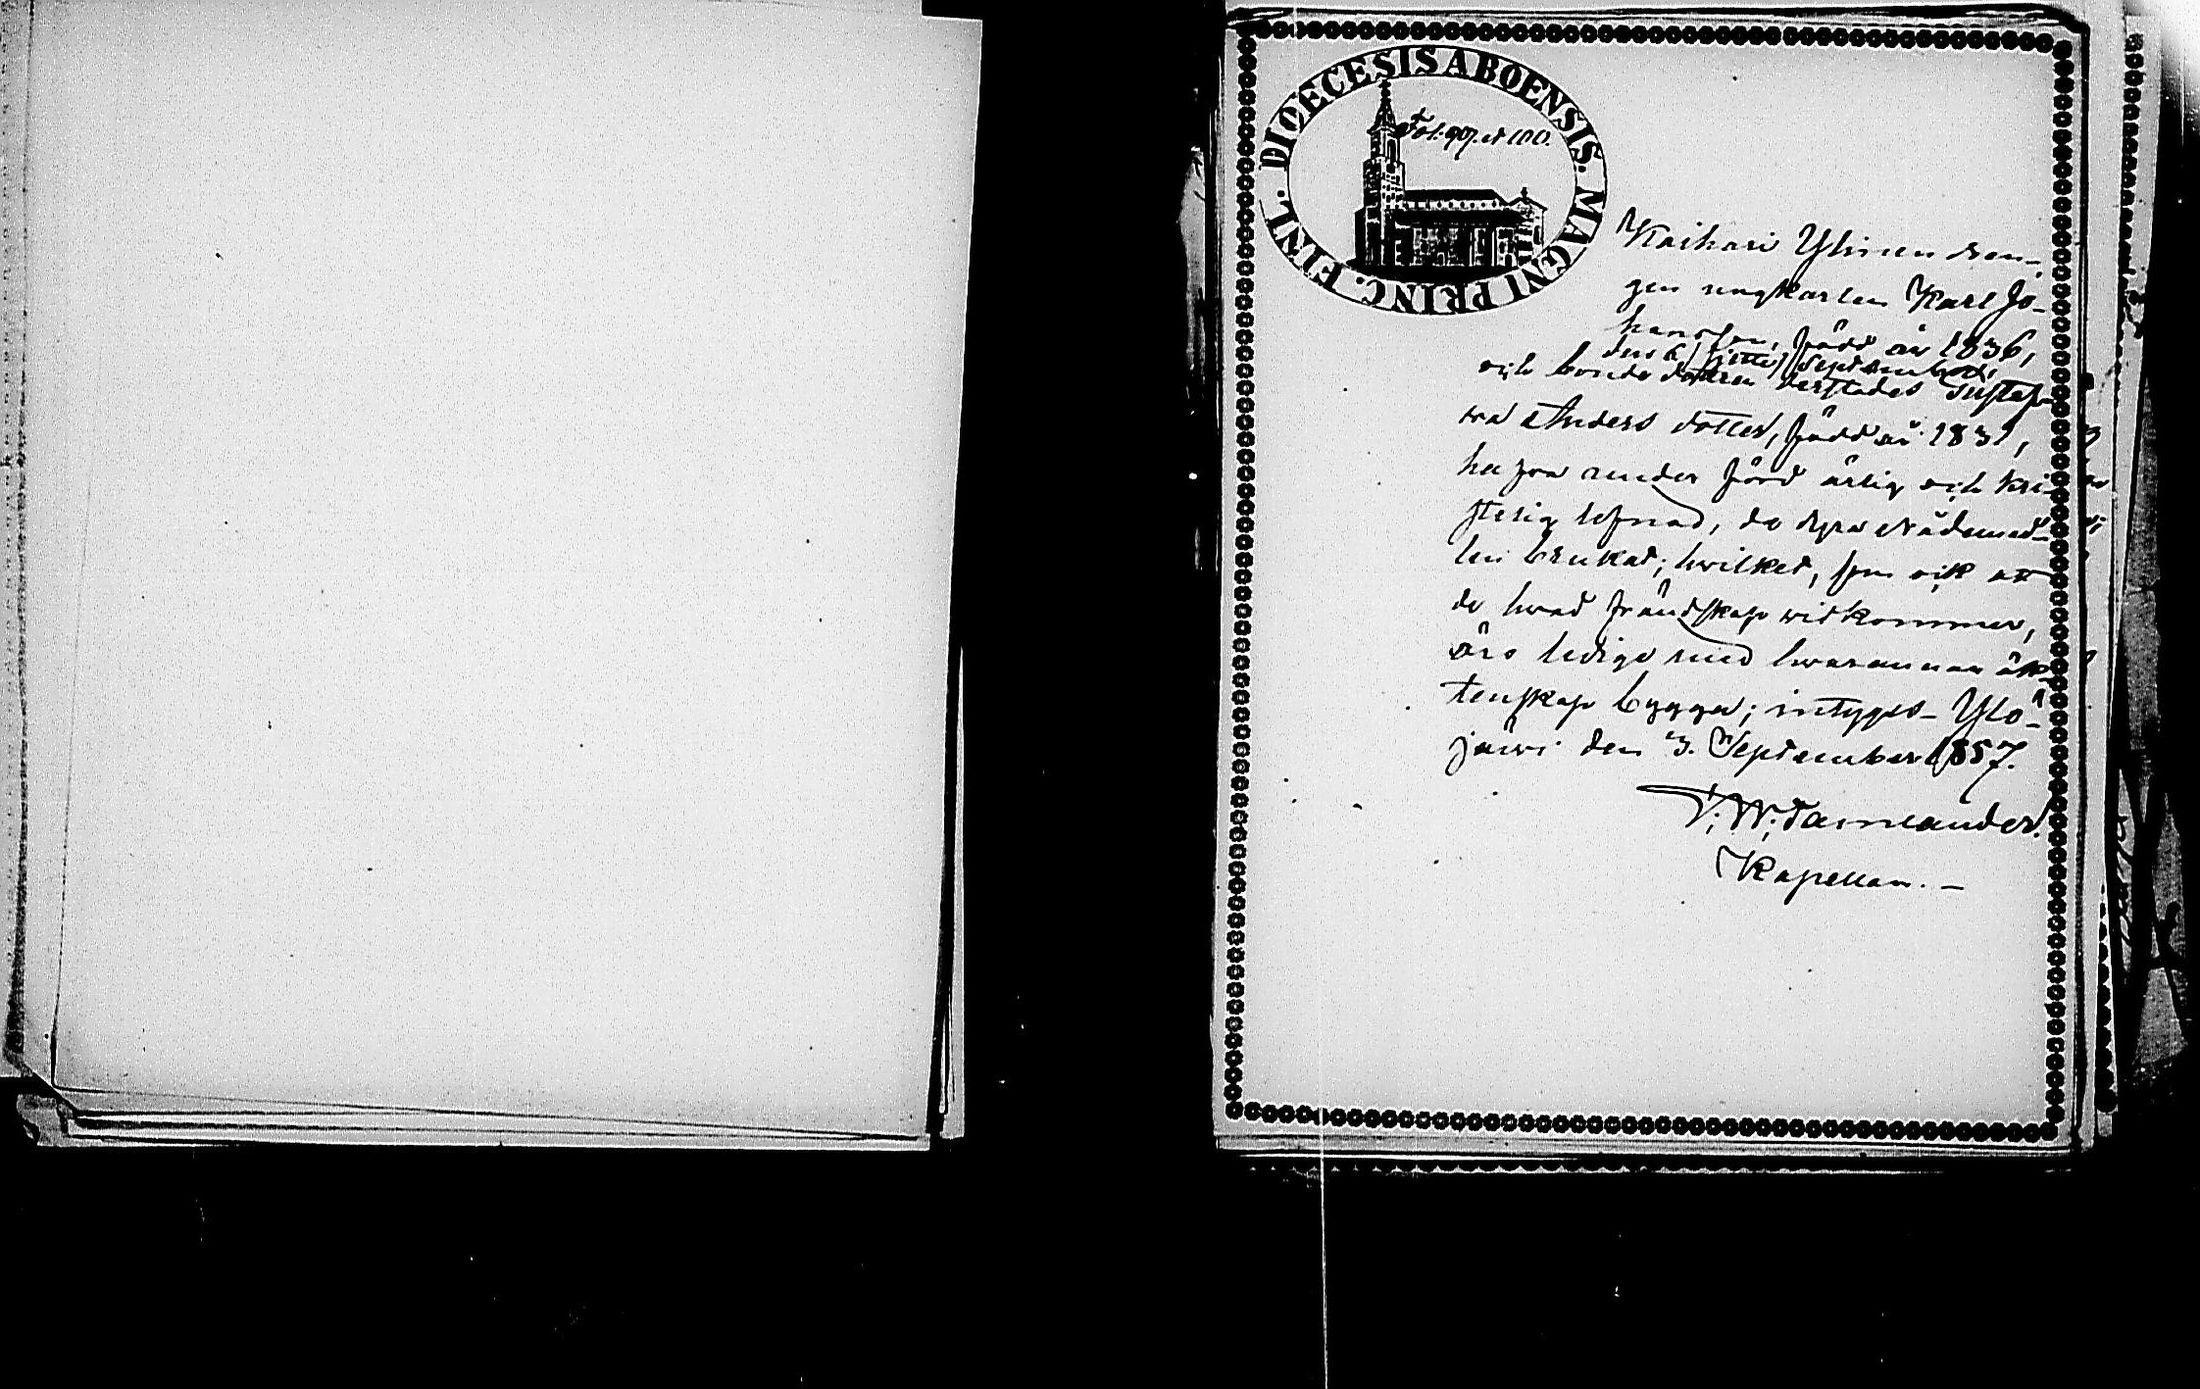 DIOECESIS ABOENSIS. MAGNI PRINC. FINL.
Fol. 97. et 100.
Kaihari Ylinen dren-
gen ungkarlen Karl Jo-
hansson, född år 1836,
den 6 /sjette/ September,
och bonde dottren derstädes Gustaf-
wa Anders dotter, född år 1831,
hafva under förd ärlig och kri-
stelig lefnad, de dyra Nådemed-
len brukat; hvilket, som ock att
de hvad frändskap widkommer,
äro ledige med hvarannan äk-
tenskap bygga; intygas Ylö-
järvi den 3. September 1857.
F. W. Tammander.
Kapellan. –